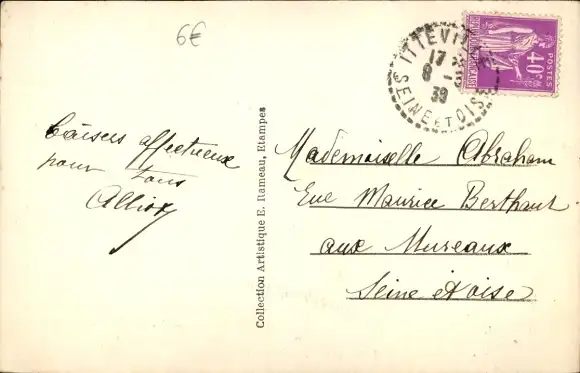 6€
ITTEVILLE
17
8 -
39
SEINE ET OISE
POSTES
40c
Baisers affectueux
pour tous
Collection Artistique E. Rameau, Etampes
Mademoiselle Abraham
Rue Maurice Berthaut
aux Mureaux
Seine et oise